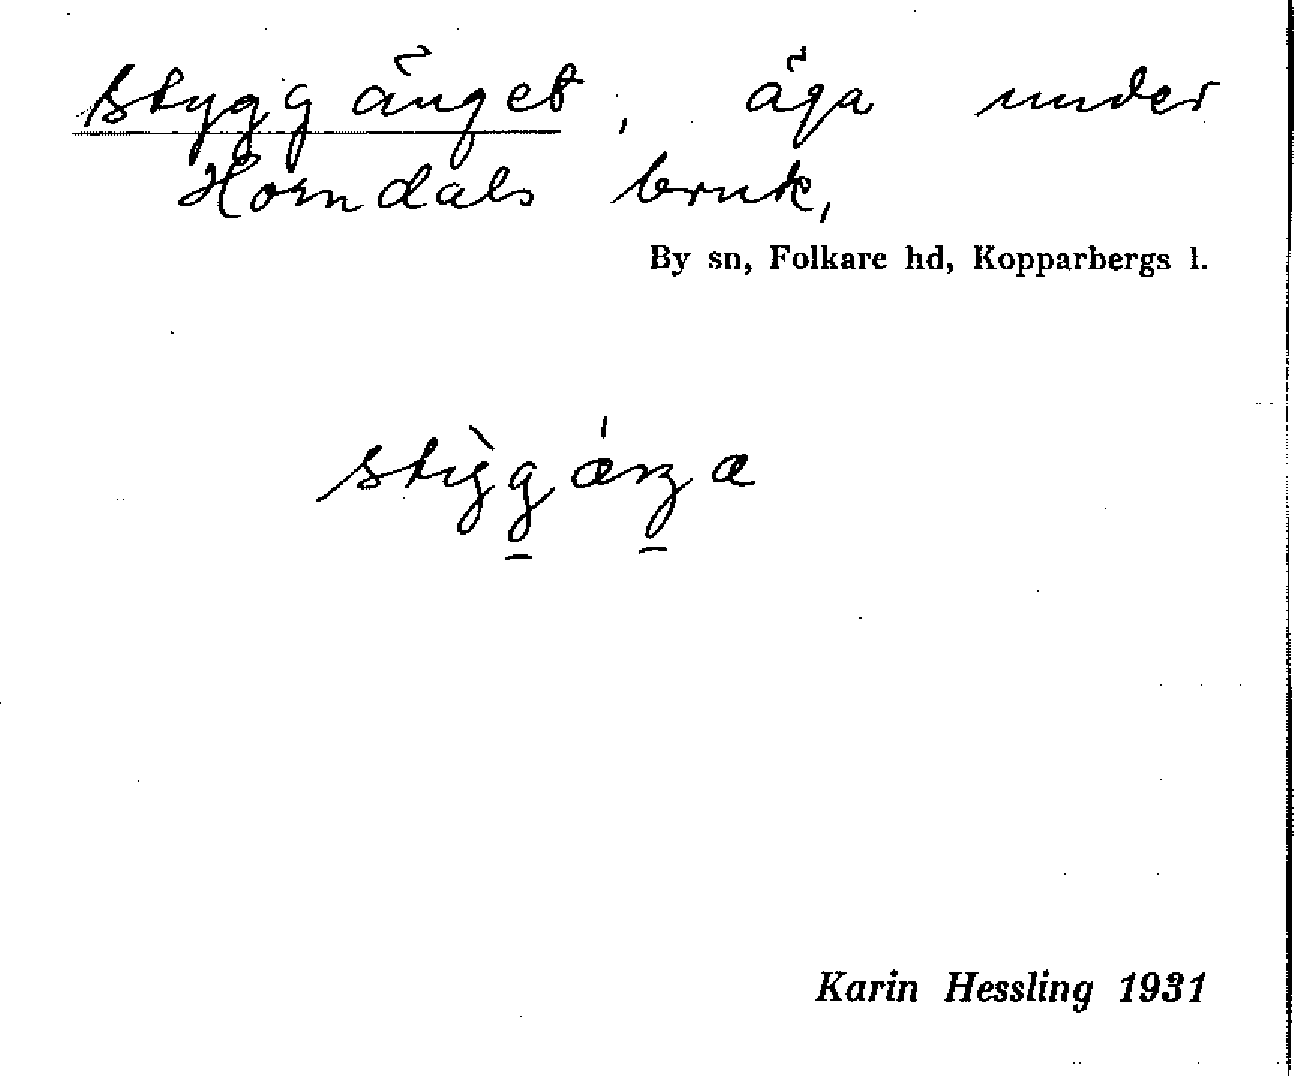 Styggänget, äga under
Horndals bruk,
By sn, Folkare hd, Kopparbergs l.
Karin Hessling 1931